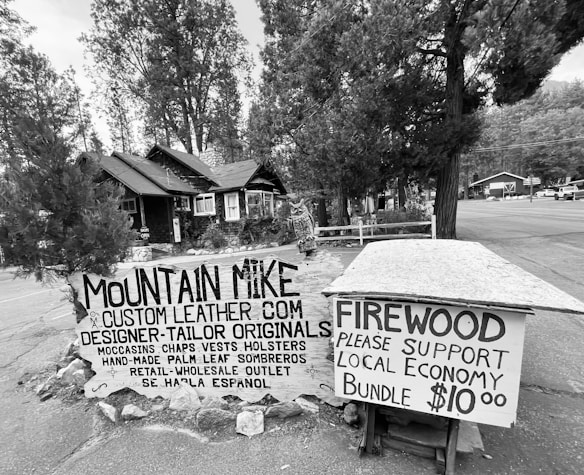 MOUNTAIN MIKE
CUSTOM LEATHER COM
DESIGNER-TAILOR ORIGINALS
MOCCASINS CHAPS VESTS HOLSTERS
HAND-MADE PALM LEAF SOMBREROS
RETAIL-WHOLESALE OUTLET
SE HABLA ESPAÑOL
FIREWOOD
PLEASE SUPPORT
LOCAL ECONOMY
BUNDLE $10.00